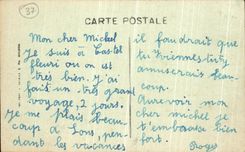 37
CARTE POSTALE
Mon cher Michel
Je suis à Castel
fleuri ou on est
très bien. J'ai
fait un très grand
voyage, 2 jours.
Je me plais beau
coup à Lons, pen
dant les vacances
il faudrait que
tu viennes t'y
amuserais beau
coup.
Aurevoir mon
cher michel je
t'embrasse bien
fort.
Roger